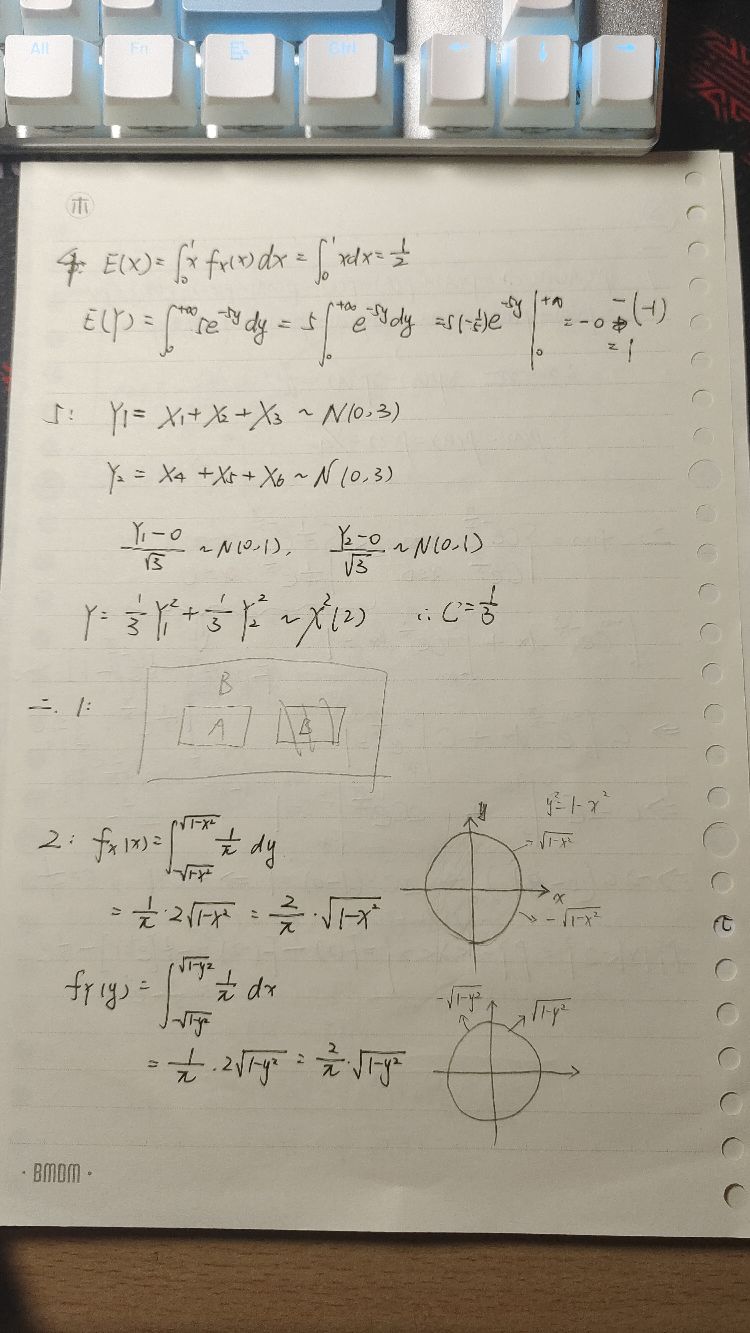 Alt Fn Ctrl ← ↓ →
木
4: E(X) = ∫₀¹ x fX(x) dx = ∫₀¹ x dx = 1/2
E(Y) = ∫₀^{+∞} 5e^{-5y} dy = 5 ∫₀^{+∞} e^{-5y} dy = 5(-1/5)e^{-5y} |₀^{+∞} = -0 -(-1)
= 1
5: Y₁ = X₁ + X₂ + X₃ ~ N(0,3)
Y₂ = X₄ + X₅ + X₆ ~ N(0,3)
(Y₁-0)/√3 ~ N(0,1), (Y₂-0)/√3 ~ N(0,1)
Y = 1/3 Y₁² + 1/3 Y₂² ~ χ²(2) ∴ C = 1/3
二. 1:
B
A B
2: fX(x) = ∫_{-√(1-x²)}^{√(1-x²)} 1/π dy
y y²=1-x²
√(1-x²)
x
-√(1-x²)
= 1/π · 2√(1-x²) = 2/π · √(1-x²)
fY(y) = ∫_{-√(1-y²)}^{√(1-y²)} 1/π dx
-√(1-y²) √(1-y²)
= 1/π · 2√(1-y²) = 2/π · √(1-y²)
· BMDM ·